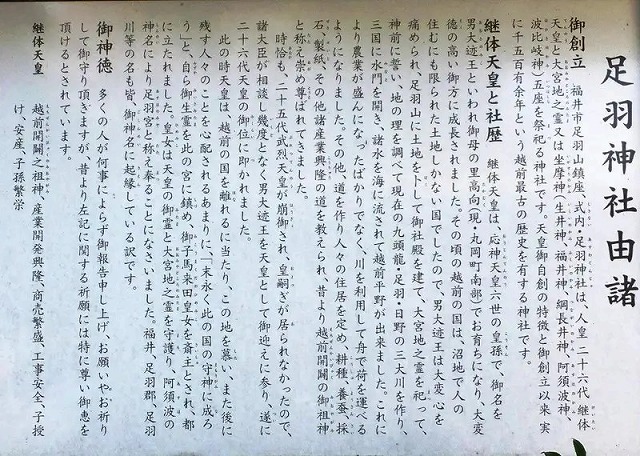 足羽神社由諸
御創立　福井市足羽山鎮座、式内・足羽神社は、人皇二十六代 継体
天皇と大宮地之霊又は坐摩神(生井神、福井神、綱長井神、阿須波神、
波比岐神)五座を祭祀る神社です。天皇御自創の特徴と御創立以来 実
に千五百有余年という越前最古の歴史を有する神社です。
継体天皇と社歴　継体天皇は、応神天皇六世の皇孫で、御名を
男大迹王といわれ御母の里高向(現・丸岡町南部でお育ちになり、大変
徳の高い御方に成長されました。その頃の越前の国は、沼地で人の
住むにも限られた土地しかない国でしたので、男大迹王は大変心を
痛められ、足羽山に土地を卜して御社殿を建て、大宮地之霊を祀って、
神前に誓い、地の理を調べて現在の九頭龍・足羽・日野の三大川を作り、
三国に水門を開き、諸水を海に流されて越前平野が出来ました。これに
より農業が盛んになったばかりでなく、川を利用して舟で荷を運べる
ようになりました。その他、道を作り人々の住居を定め、耕種、養蚕、採
石、製紙、その他諸産業興隆の道を教えられ、昔より越前開闢の御祖神
と称え崇め尊ばれてきました。
時恰も、二十五代武烈天皇が崩御され、皇嗣ぎが居られなかったので、
諸大臣が相談し幾度となく男大迹王を天皇として御迎えに参り、遂に
二十六代天皇の御位に即かれました。
此の時天皇は、越前の国を離れるに当たり、この地を慕い、また後に
残す人々のことを心配されるあまりに、「末永く此の国の守神に成ろ
う」と、自ら御生霊を此の宮に鎮め、御子馬来田皇女を斎王とされ、都
に立たれました。皇女は天皇の御霊と大宮地之霊を守護り、阿須波の
神名により足羽宮と称え奉ることになさいました。福井、足羽郡、足羽
川等の名も皆、御神名に起縁している訳です。
御神徳　多くの人が何事によらず御報告申し上げ、お願いやお祈り
して御守り頂きますが、昔より左記に関する祈願には特に尊い御恵を
頂けるとされています。
継体天皇　越前開闢之祖神、産業開発興隆、商売繁盛、工事安全、子授
け、安産、子孫繁栄